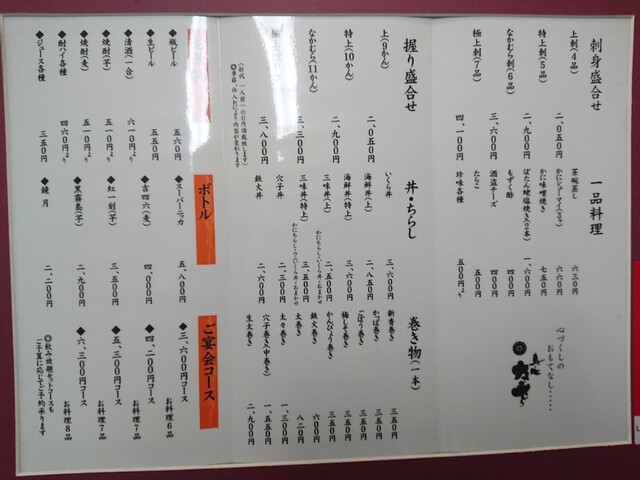 刺身盛合せ
上刺(4品) 二、〇五〇円
特上刺(5品) 二、九〇〇円
なかむら刺(6品) 三、六〇〇円
極上刺(7品) 四、一〇〇円
一品料理
茶碗蒸し 六三〇円
かにシューマイ(3ケ) 六六〇円
かに味噌焼き 七五〇円
ぼたん姥塩焼き(2本) 一、六〇〇円
もずく酢 四〇〇円
酒盗チーズ 四〇〇円
たらこ 五〇〇円
珍味各種 五〇〇円より
心づくしの
おもてなし・・・・・
握り盛合せ
上(9かん) 二、〇五〇円
特上(10かん) 二、九〇〇円
なかむら(11かん) 三、三〇〇円
三、八〇〇円
丼・ちらし
いくら丼 三、六〇〇円
海鮮丼(上) 二、八五〇円
海鮮丼(特上) 三、六〇〇円
三味丼(上) 二、五〇〇円
かにちらし・いくら丼・おまかせ
三味丼(特上) 三、五〇〇円
かにちらし・ウニいくら丼・おまかせ
穴子丼 二、六〇〇円
鉄火丼 二、六〇〇円
巻き物(一本)
新香巻き 三五〇円
かっぱ巻き 三五〇円
ごぼう巻き 三五〇円
梅しそ巻き 三五〇円
かんぴょう巻き 三五〇円
鉄火巻き 六〇〇円
太巻き 八二〇円
太々巻き 一、三〇〇円
穴子巻き(中巻き) 一、五五〇円
生太巻き 二、九〇〇円
◆瓶ビール 五六〇円
◆生ビール 五五〇円
◆清酒(一合) 六一〇円より
◆焼酎(芋) 五一〇円より
◆焼酎(麦) 五一〇円より
◆酎ハイ各種 四六〇円より
◆ジュース各種 三五〇円
ボトル
◆スーパーニッカ 五、八〇〇円
◆吉四六(麦) 四、〇〇〇円
◆紅一刻(芋) 三、五〇〇円
◆黒霧島(芋) 二、九〇〇円
◆鏡月 二、二〇〇円
ご宴会コース
◆三、六〇〇円コース お料理6品
◆四、二〇〇円コース お料理7品
◆五、三〇〇円コース お料理7品
◆六、三〇〇円コース お料理8品
◎飲み放題セットコースも
ご予算に応じてご予約承ります